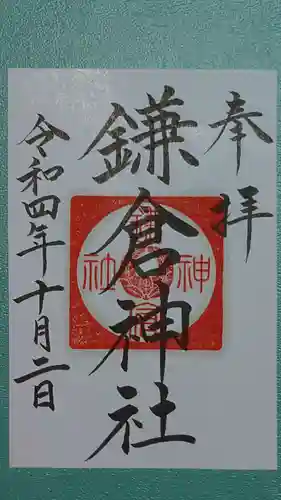 奉拝
鎌倉神社
令和四年十月二日
鎌倉神社